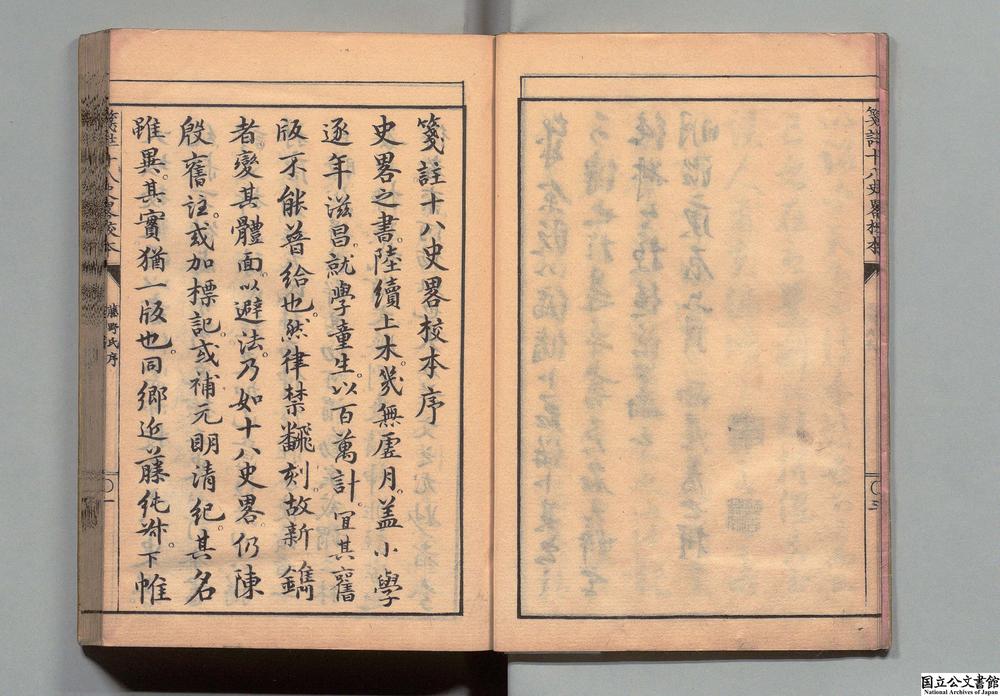 箋註十八史畧校本
三
箋註十八史畧校本序
史畧之書。陸續上木。幾無虛月。蓋小學
逐年滋昌。就學童生。以百萬計。宜其舊
版不能普給也。然律禁飜刻。故新鐫
者變其體面。以避法。乃如十八史畧。仍陳
殷舊註。或加標記。或補元明清紀。其名
雖異。其實猶一版也。同鄉近藤純叔。下帷
藤野氏序
一
国立公文書館
National Archives of Japan